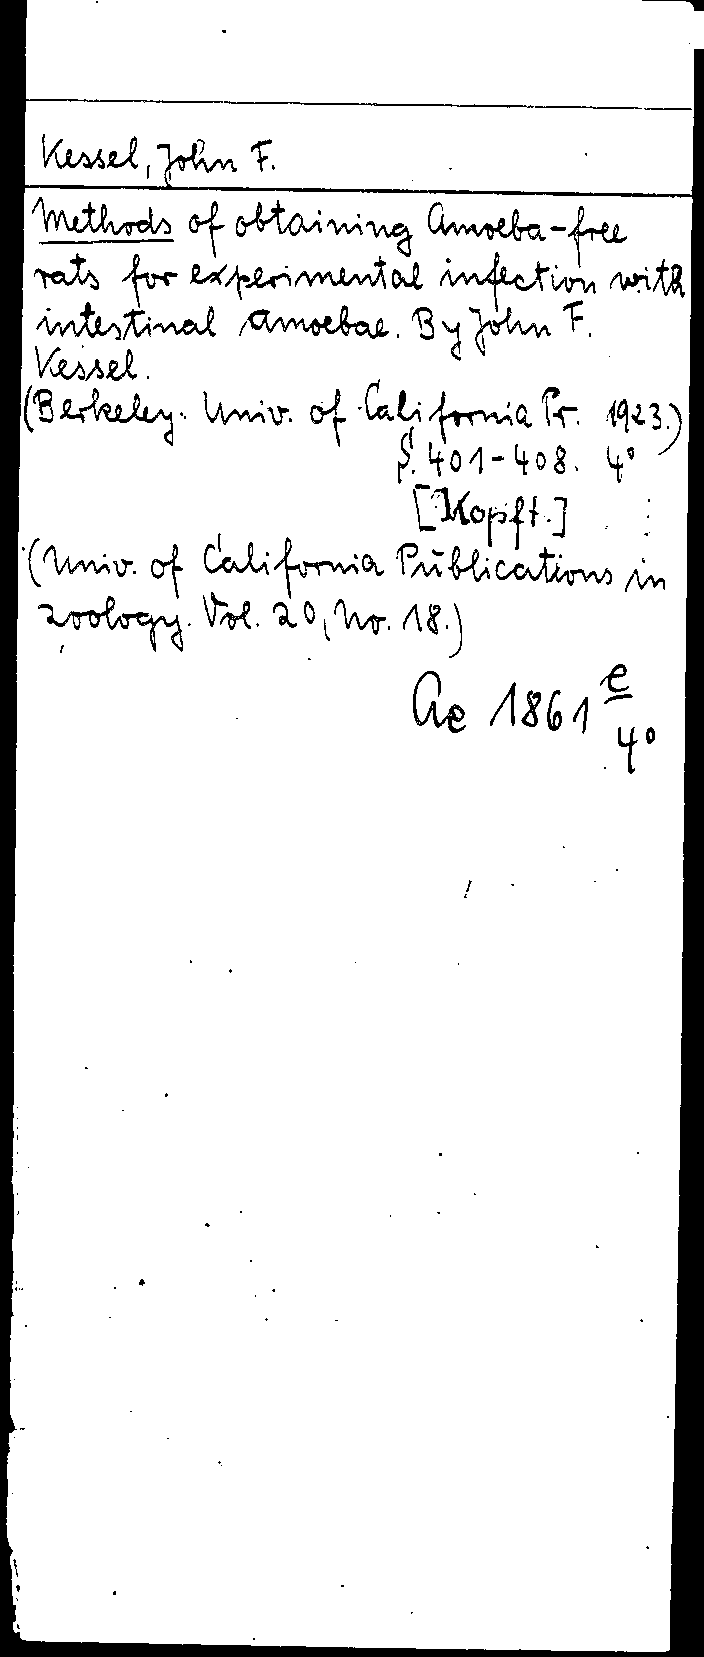 Kessel, John F.
Methods of obtaining Amoeba-free
rats for experimental infection with
intestinal amoebae. By John F.
Kessel.
(Berkeley. Univ. of California Pr. 1923.)
S. 401-408. 4°
[Kopft.]
(Univ. of California Publications in
zoology. Vol. 20, No. 18.)
Ae 1861 e
4°